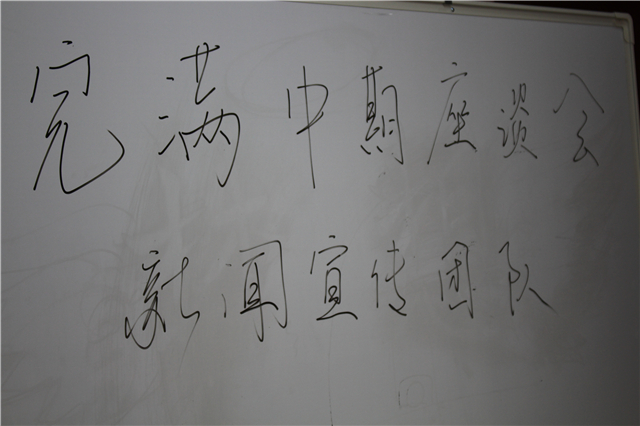 完满中期座谈会
新闻宣传团队